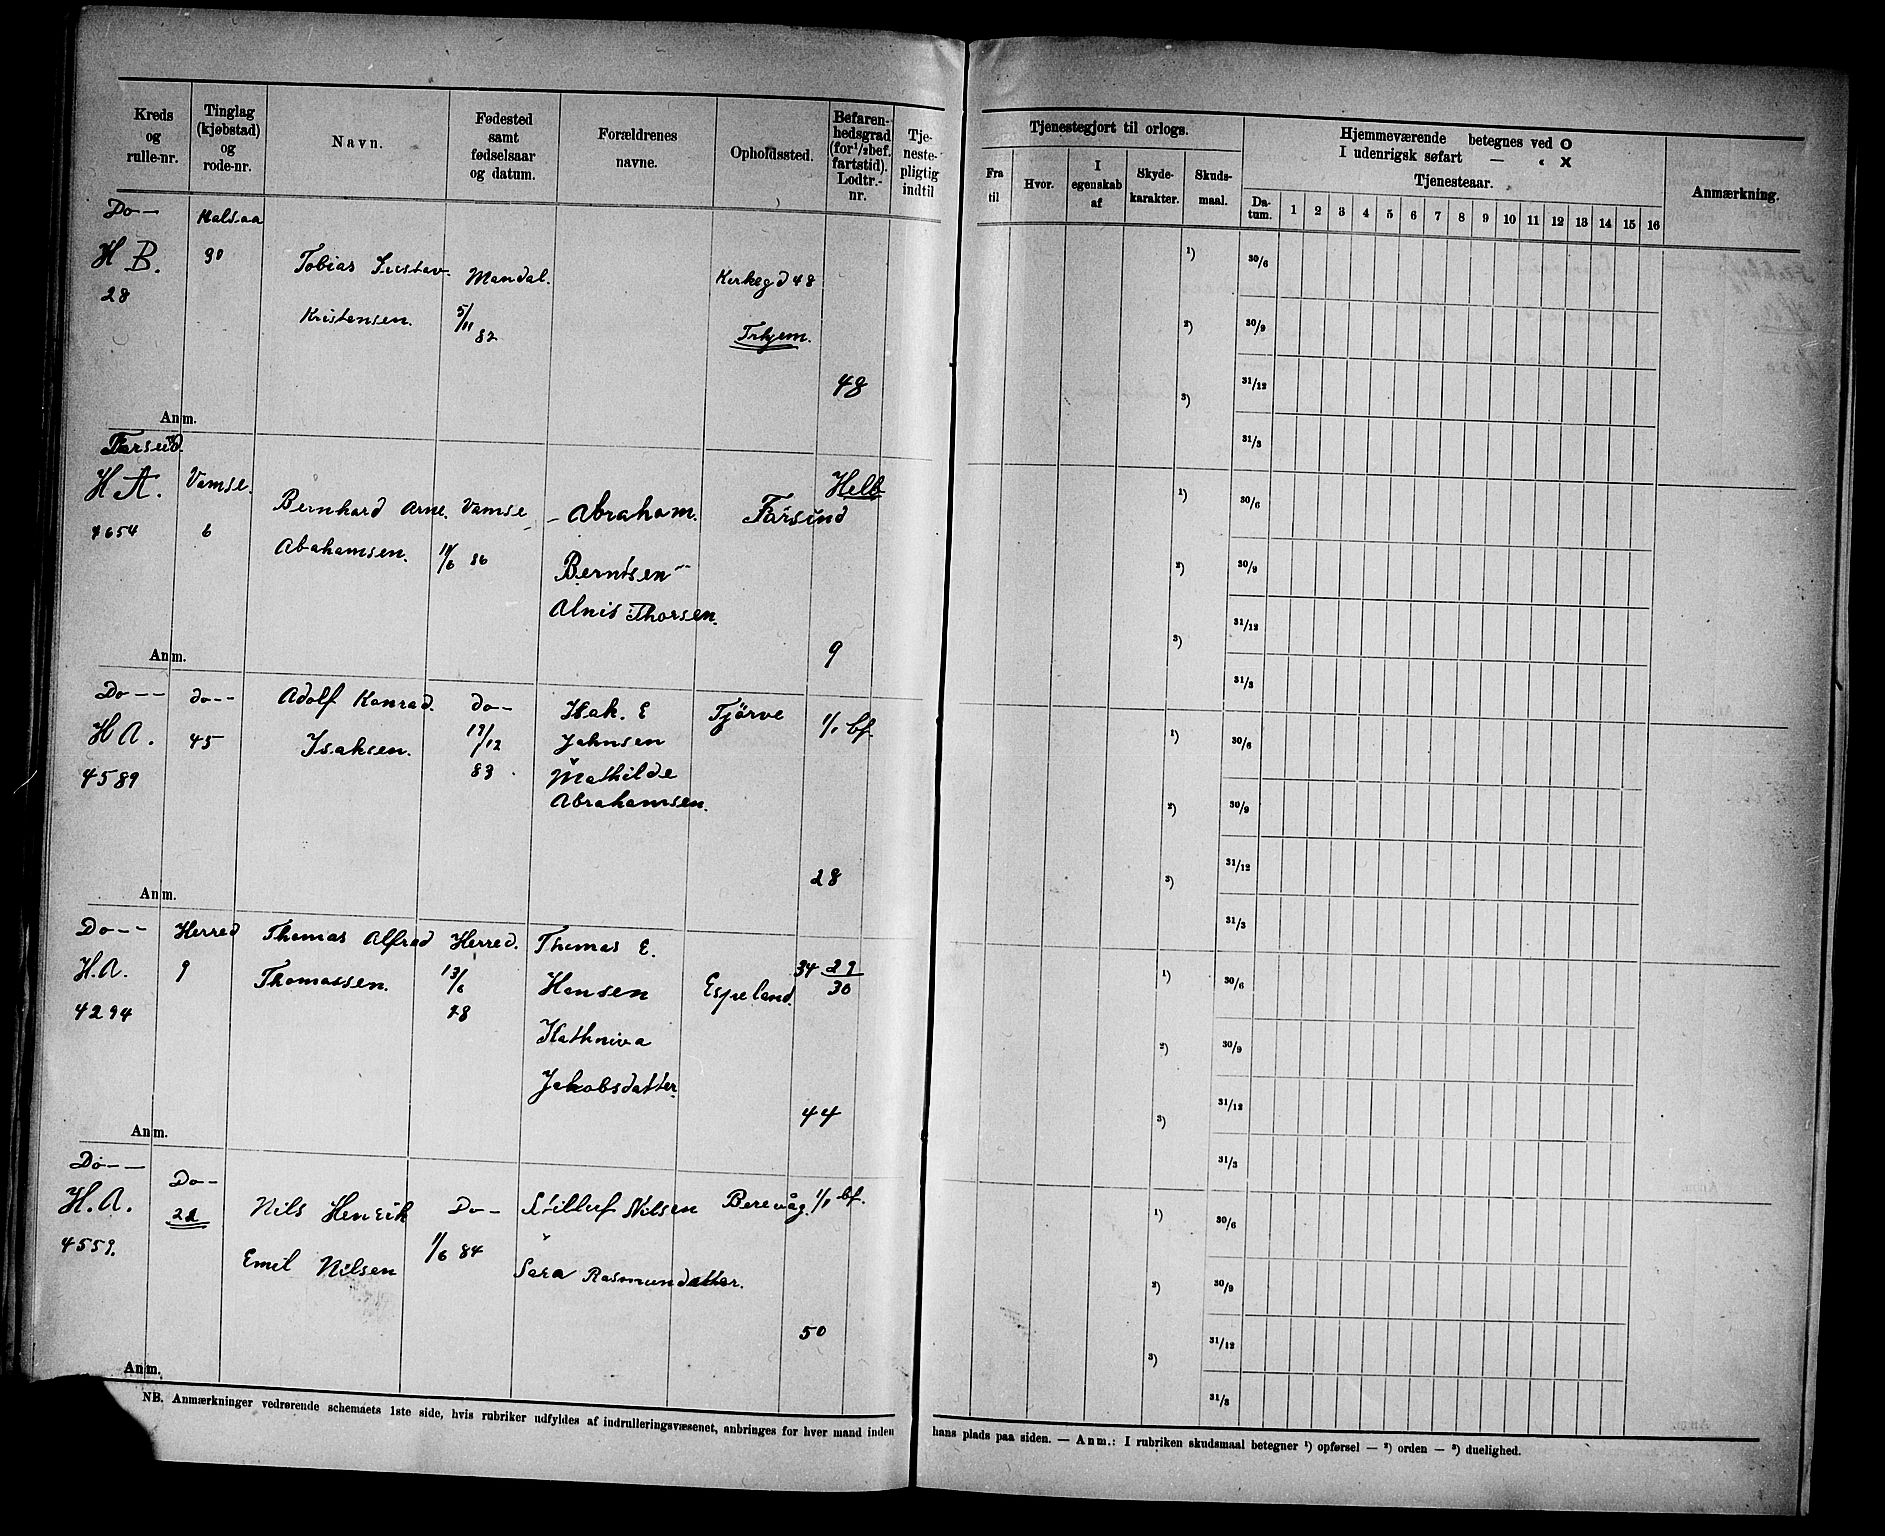 Kreds
og
rulle-nr.
Tinglag
(kjøbstad)
og
rode-nr.
Navn.
Fødested
samt
fødselsaar
og datum.
Forældrenes
navne.
Opholdssted.
Befaren-
hedsgrad
(for 1/2 bef.
fartstid).
Lodtr.-
nr.
Tje-
neste-
pligtig
indtil
Do—
H B.
28
Halsaa
30
Tobias Gustav
Kristensen.
Mandal.
5/11 82
Kirkegd 48
Trhjem.
48
Anm.
Farsund.
H A.
4654
Vamse.
6
Bernhard Arne.
Abahamsen.
Vamse
86
Abraham.
Berntsen
Alnis Thorsen.
Farsund
Helb
9
Anm.
Do—
H A.
4589
do—
45
Adolf Konrad.
Isaksen.
do—
19/12
83
Isak. E
Jahnsen
Mathilde
Abrahamsen.
Tjörve
1/1 bf.
28
Anm.
Do—
H.A.
4294
Herred
9
Thomas Alfred
Thomassen.
Herred.
13/6
78
Thomas E.
Hansen
Kathniva
Jakobsdatter.
Espeland.
34 29/30
44
Anm.
Do—
H.A.
4559.
Do—
22
Nils Henrik
Emil Nilsen
Do—
11/6 84
Nilsen
Sara Rasmundatter.
Berevåg.
1/1 bf.
50
Anm.
NB. Anmærkninger vedrørende schemaets 1ste side, hvis rubriker udfyldes af indrulleringsvæsenet, anbringes for hver mand inden
Tjenestegjort til orlogs.
Fra
til
Hvor.
I
egenskab
af
Skyde-
karakter.
Skuds-
maal.
Hjemmeværende betegnes ved O
I udenrigsk søfart — « X
Tjenesteaar.
Da-
tum.
1 2 3 4 5 6 7 8 9 10 11 12 13 14 15 16
Anmærkning.
1) 30/6
2) 30/9
31/12
3)
31/3
1) 30/6
2) 30/9
31/12
3)
31/3
1) 30/6
2) 30/9
31/12
3)
31/3
1) 30/6
2) 30/9
31/12
3)
31/3
1) 30/6
2) 30/9
31/12
3)
31/3
hans plads paa siden. — Anm.: I rubriken skudsmaal betegner 1) opførsel — 2) orden — 3) duelighed.